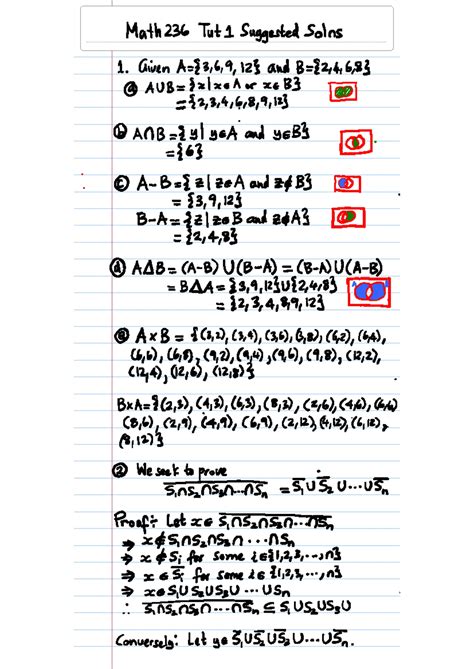 Math 236 Tut 1 Suggested Solns
1. Given A={3,6,9,12} and B={2,4,6,8}
ⓐ A∪B = {x|x∈A or x∈B}
= {2,3,4,6,8,9,12}
ⓑ A∩B = {y|y∈A and y∈B}
= {6}
ⓒ A-B = {z|z∈A and z∉B}
= {3,9,12}
B-A = {z|z∈B and z∉A}
= {2,4,8}
ⓓ A∆B = (A-B)∪(B-A) = (B-A)∪(A-B)
= B∆A = {3,9,12}∪{2,4,8}
= {2,3,4,8,9,12}
ⓔ A×B = {(3,2), (3,4), (3,6), (3,8), (6,2), (6,4),
(6,6), (6,8), (9,2), (9,4), (9,6), (9,8), (12,2),
(12,4), (12,6), (12,8)}
B×A = {(2,3), (4,3), (6,3), (8,3), (2,6), (4,6), (6,6)
(8,6), (2,9), (4,9), (6,9), (2,12), (4,12), (6,12),
(8,12)}
② We seek to prove
S̅₁∩S₂∩S₃∩...∩Sₙ̅ = S̅₁∪S̅₂∪...∪S̅ₙ
Proof: Let x∈ S̅₁∩S₂∩S₃∩...∩Sₙ̅
⇒ x∉S₁∩S₂∩S₃∩...∩Sₙ
⇒ x∉Sᵢ for some i∈{1,2,3,...,n}
⇒ x∈S̅ᵢ for some i∈{1,2,3,...,n}
⇒ x∈S₁∪S₂∪S₃∪...∪Sₙ
∴ S̅₁∩S₂∩S₃∩...∩Sₙ̅ ⊆ S₁∪S₂∪S₃∪
Conversely: Let y∈S̅₁∪S̅₂∪S̅₃∪...∪S̅ₙ.